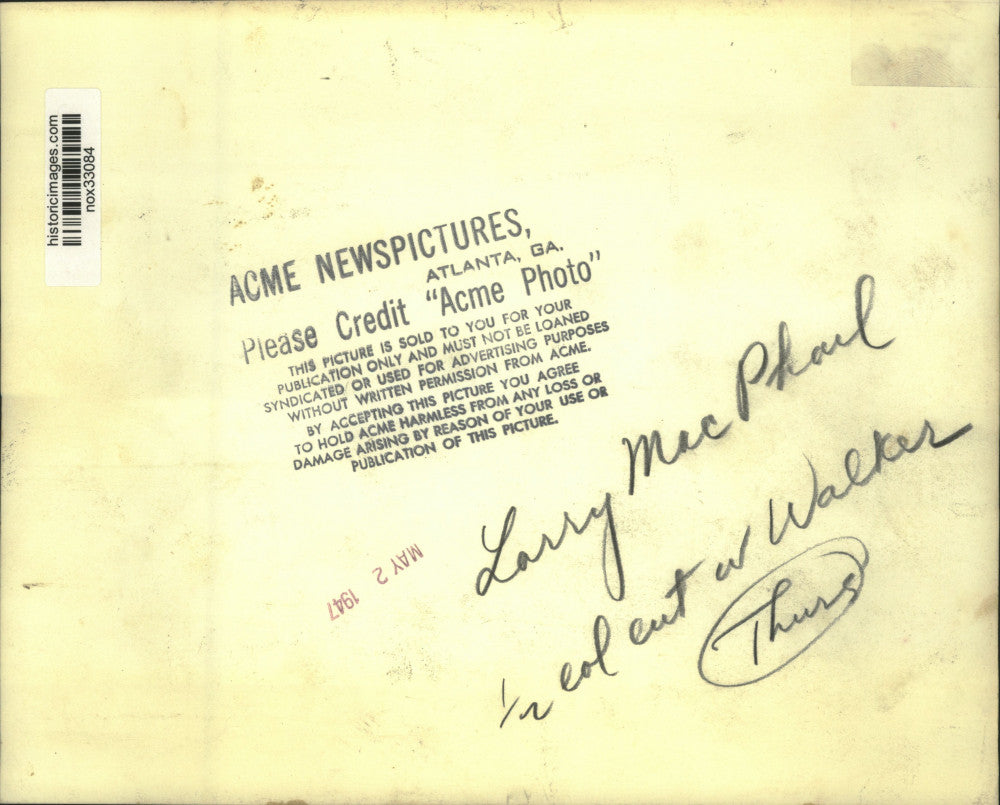 historicimages.com
nox33084
ACME NEWSPICTURES,
ATLANTA, GA.
Please Credit "Acme Photo"
THIS PICTURE IS SOLD TO YOU FOR YOUR
PUBLICATION ONLY AND MUST NOT BE LOANED
SYNDICATED OR USED FOR ADVERTISING PURPOSES
WITHOUT WRITTEN PERMISSION FROM ACME.
BY ACCEPTING THIS PICTURE YOU AGREE
TO HOLD ACME HARMLESS FROM ANY LOSS OR
DAMAGE ARISING BY REASON OF YOUR USE OR
PUBLICATION OF THIS PICTURE.
MAY 2 1947
Larry MacPhail
1/2 col cut w Walker
Thurs